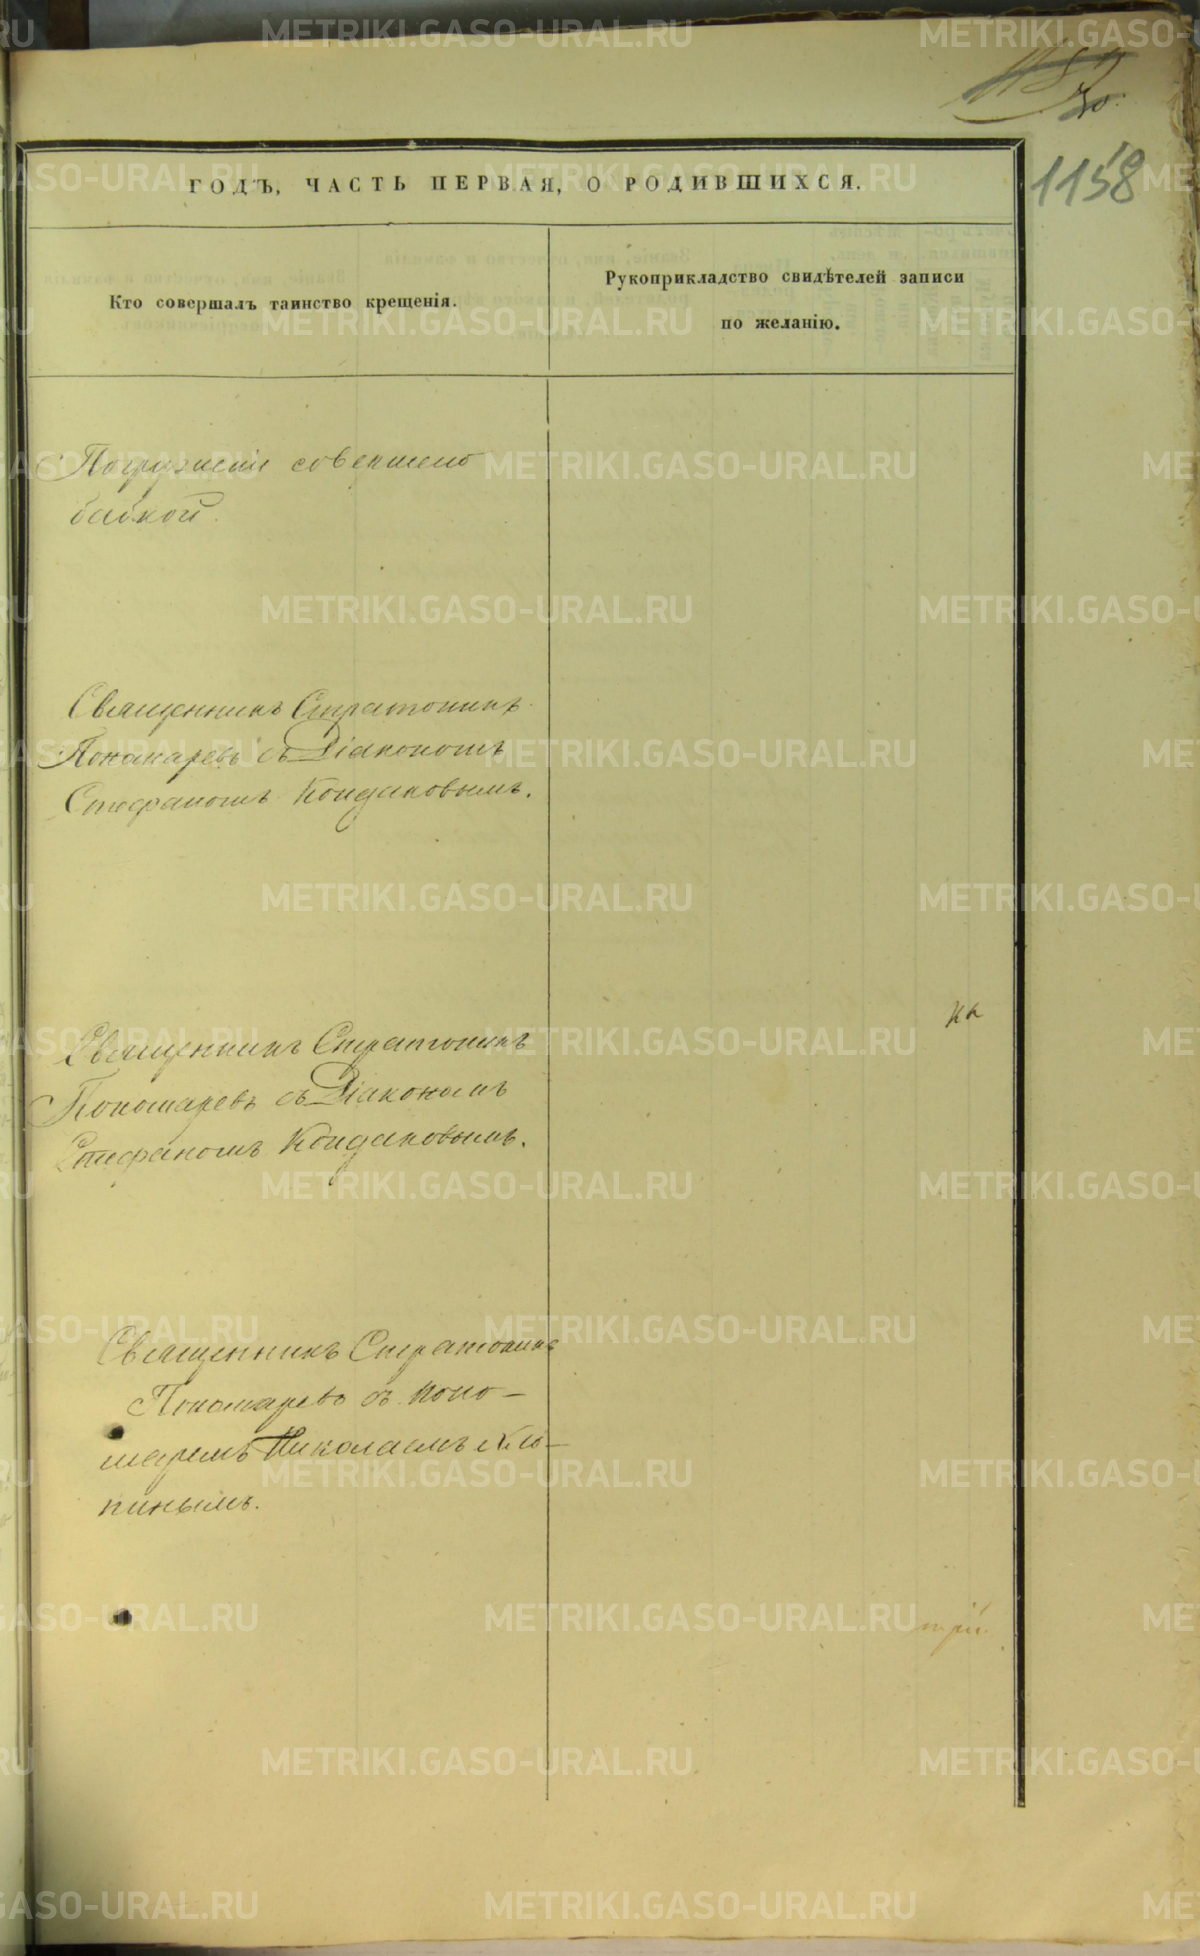 1158
ГОДЪ, ЧАСТЬ ПЕРВАЯ, О РОДИВШИХСЯ.
Кто совершалъ таинство крещенія.
Рукоприкладство свидѣтелей записи
по желанію.
Погруженіе совершено
бабкой.
Священникъ Стратоникъ
Пономаревъ съ Діакономъ
Стефаномъ Кондаковымъ.
Священникъ Стратоникъ
Пономаревъ съ Діакономъ
Стефаномъ Кондаковымъ.
Священникъ Стратоникъ
Пономаревъ съ поно-
маремъ Николаемъ
пинымъ.
METRIKI.GASO-URAL.RU